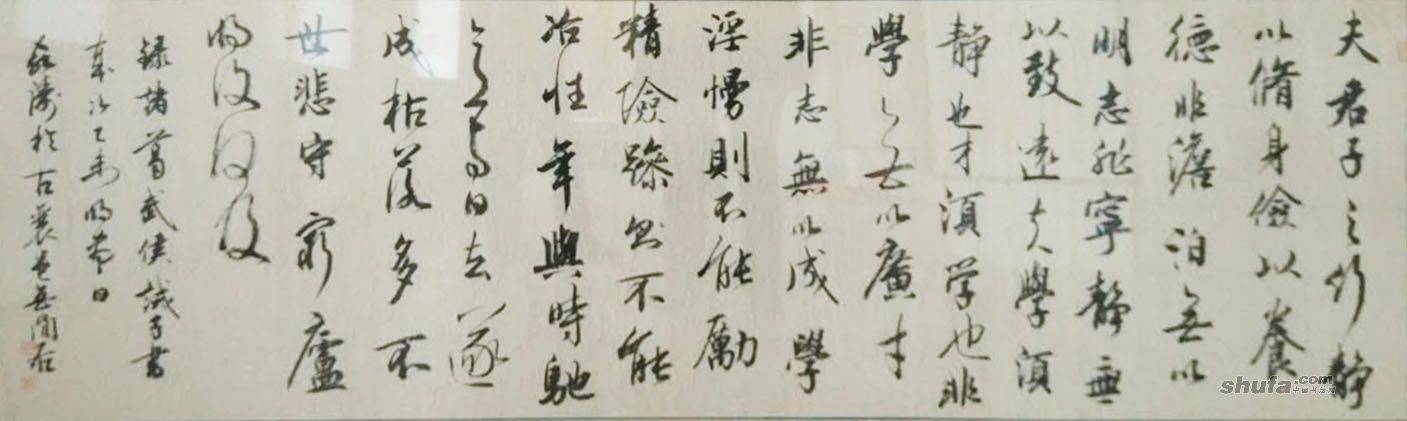 夫君子之行静
以脩身儉以養
德非澹泊无以
明志非寧静無
以致遠夫學須
静也才須学也非
學无以廣才
非志無以成學
淫慢則不能勵
精險躁則不能
冶性年與時馳
意与日去遂
成枯落多不
世悲守窮廬
將復何及
録諸葛武侯誡子書
歲次乙未 日
濤於古襄
shufa.com